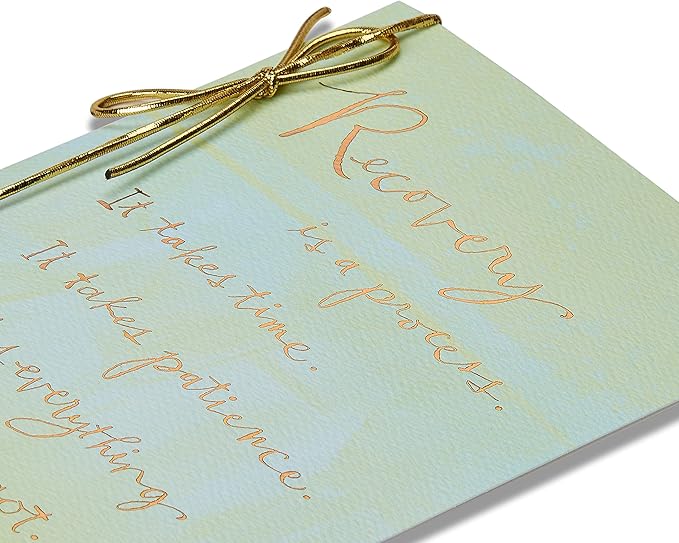 Recovery
is a process.
It takes time.
It takes patience.
everything